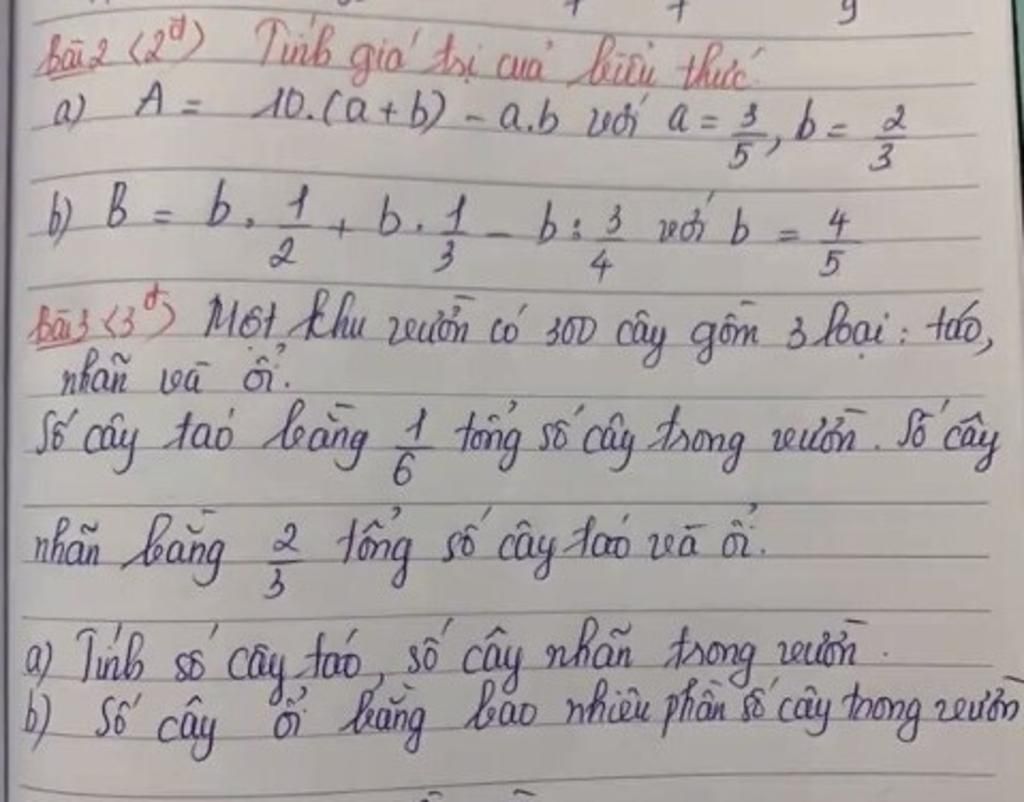 Bài 2 <2đ> Tính giá trị của biểu thức
a) A = 10.(a+b) - a.b với a = 3/5, b = 2/3
b) B = b . 1/2 + b . 1/3 - b : 3/4 với b = 4/5
Bài 3 <3đ> Một khu vườn có 300 cây gồm 3 loại: táo,
nhãn và ổi.
Số cây táo bằng 1/6 tổng số cây trong vườn. Số cây
nhãn bằng 2/3 tổng số cây táo và ổi.
a) Tính số cây táo, số cây nhãn trong vườn.
b) Số cây ổi bằng bao nhiêu phần số cây trong vườn